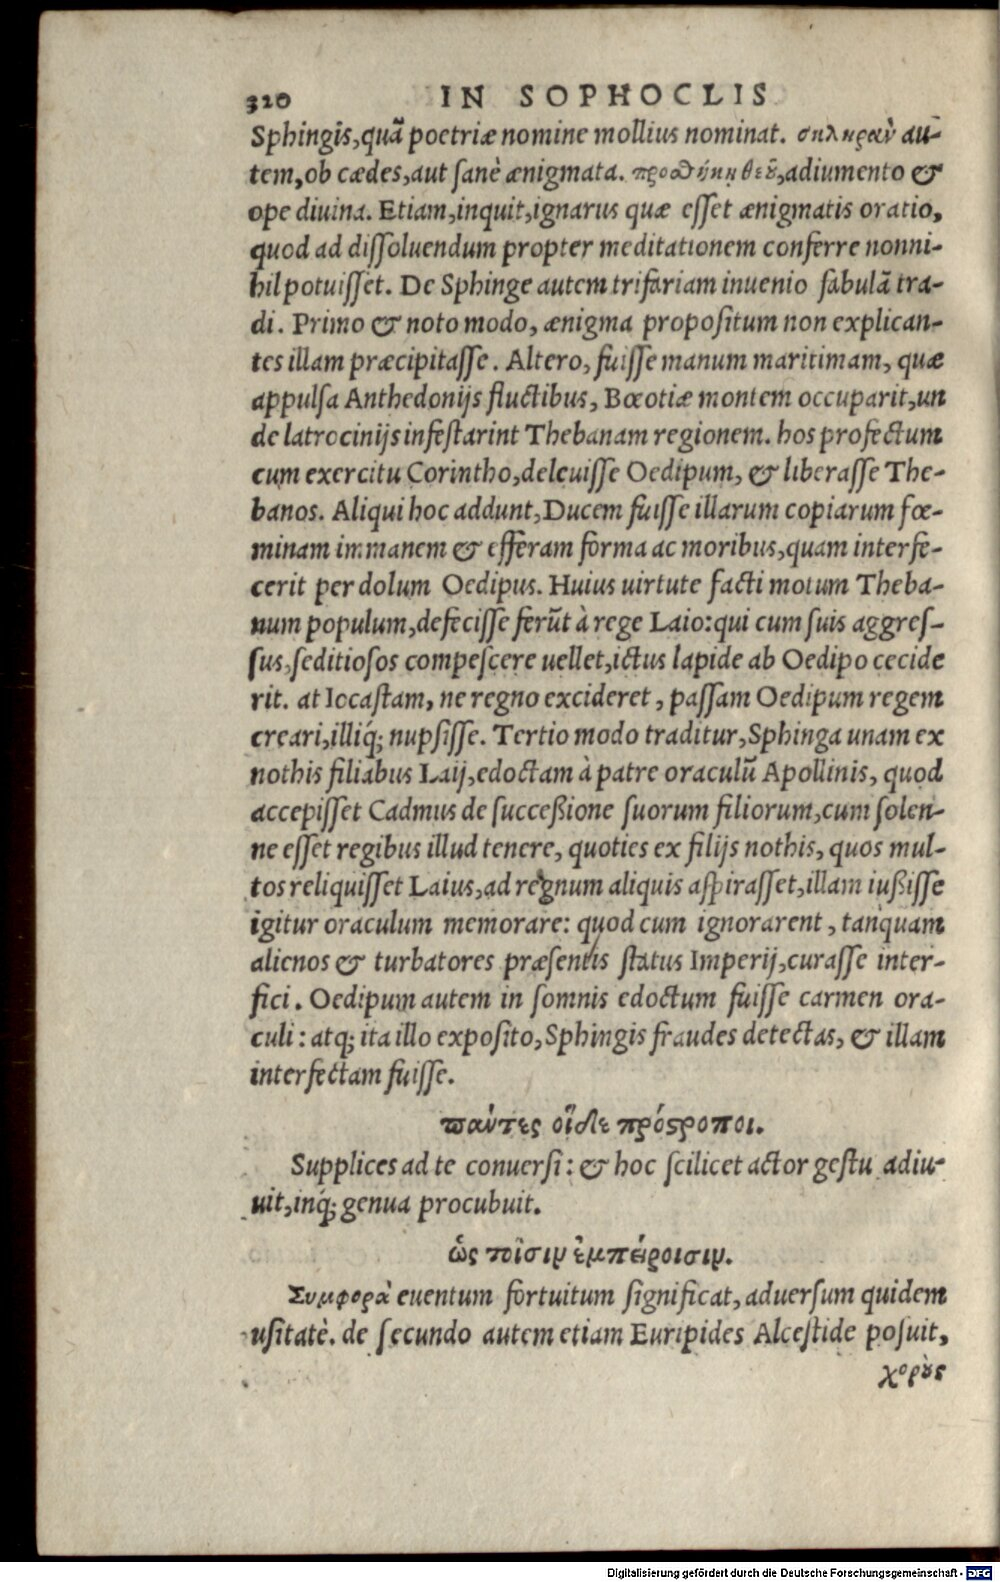 320 IN SOPHOCLIS
Sphingis, quã poetriæ nomine mollius nominat. σκληρὰν au-
tem, ob cædes, aut sanè ænigmata. προσθήκη θεȣ͂, adiumento &
ope diuina. Etiam, inquit, ignarus quæ esset ænigmatis oratio,
quod ad dissoluendum propter meditationem conferre nonni-
hil potuisset. De Sphinge autem trifariam inuenio fabulã tra-
di. Primo & noto modo, ænigma propositum non explican-
tes illam præcipitasse. Altero, fuisse manum maritimam, quæ
appulsa Anthedonijs fluctibus, Bœotiæ montem occuparit, un
de latrocinijs infestarint Thebanam regionem. hos profectum
cum exercitu Corintho, deleuisse Oedipum, & liberasse The-
banos. Aliqui hoc addunt, Ducem fuisse illarum copiarum fœ-
minam immanem & efferam forma ac moribus, quam interfe-
cerit per dolum Oedipus. Huius uirtute facti motum Theba-
num populum, defecisse ferũt à rege Laio: qui cum suis aggres-
sus, seditiosos compescere uellet, ictus lapide ab Oedipo cecide
rit. at Iocastam, ne regno excideret, passam Oedipum regem
creari, illiq́; nupsisse. Tertio modo traditur, Sphinga unam ex
nothis filiabus Laij, edoctam à patre oraculũ Apollinis, quod
accepisset Cadmus de succeßione suorum filiorum, cum solen-
ne esset regibus illud tenere, quoties ex filijs nothis, quos mul-
tos reliquisset Laius, ad regnum aliquis aspirasset, illam iußisse
igitur oraculum memorare: quod cum ignorarent, tanquam
alienos & turbatores præsentis status Imperij, curasse inter-
fici. Oedipum autem in somnis edoctum fuisse carmen ora-
culi: atq; ita illo exposito, Sphingis fraudes detectas, & illam
interfectam fuisse.
πάντες οἵδε πρόςροποι.
Supplices ad te conuersi: & hoc scilicet actor gestu adiu-
uit, inq́; genua procubuit.
ὡς τοῖσιν ἐμπείροισιν.
Συμφορὰ euentum fortuitum significat, aduersum quidem
usitatè. de secundo autem etiam Euripides Alcestide posuit,
χορὸς
Digitalisierung gefördert durch die Deutsche Forschungsgemeinschaft - DFG